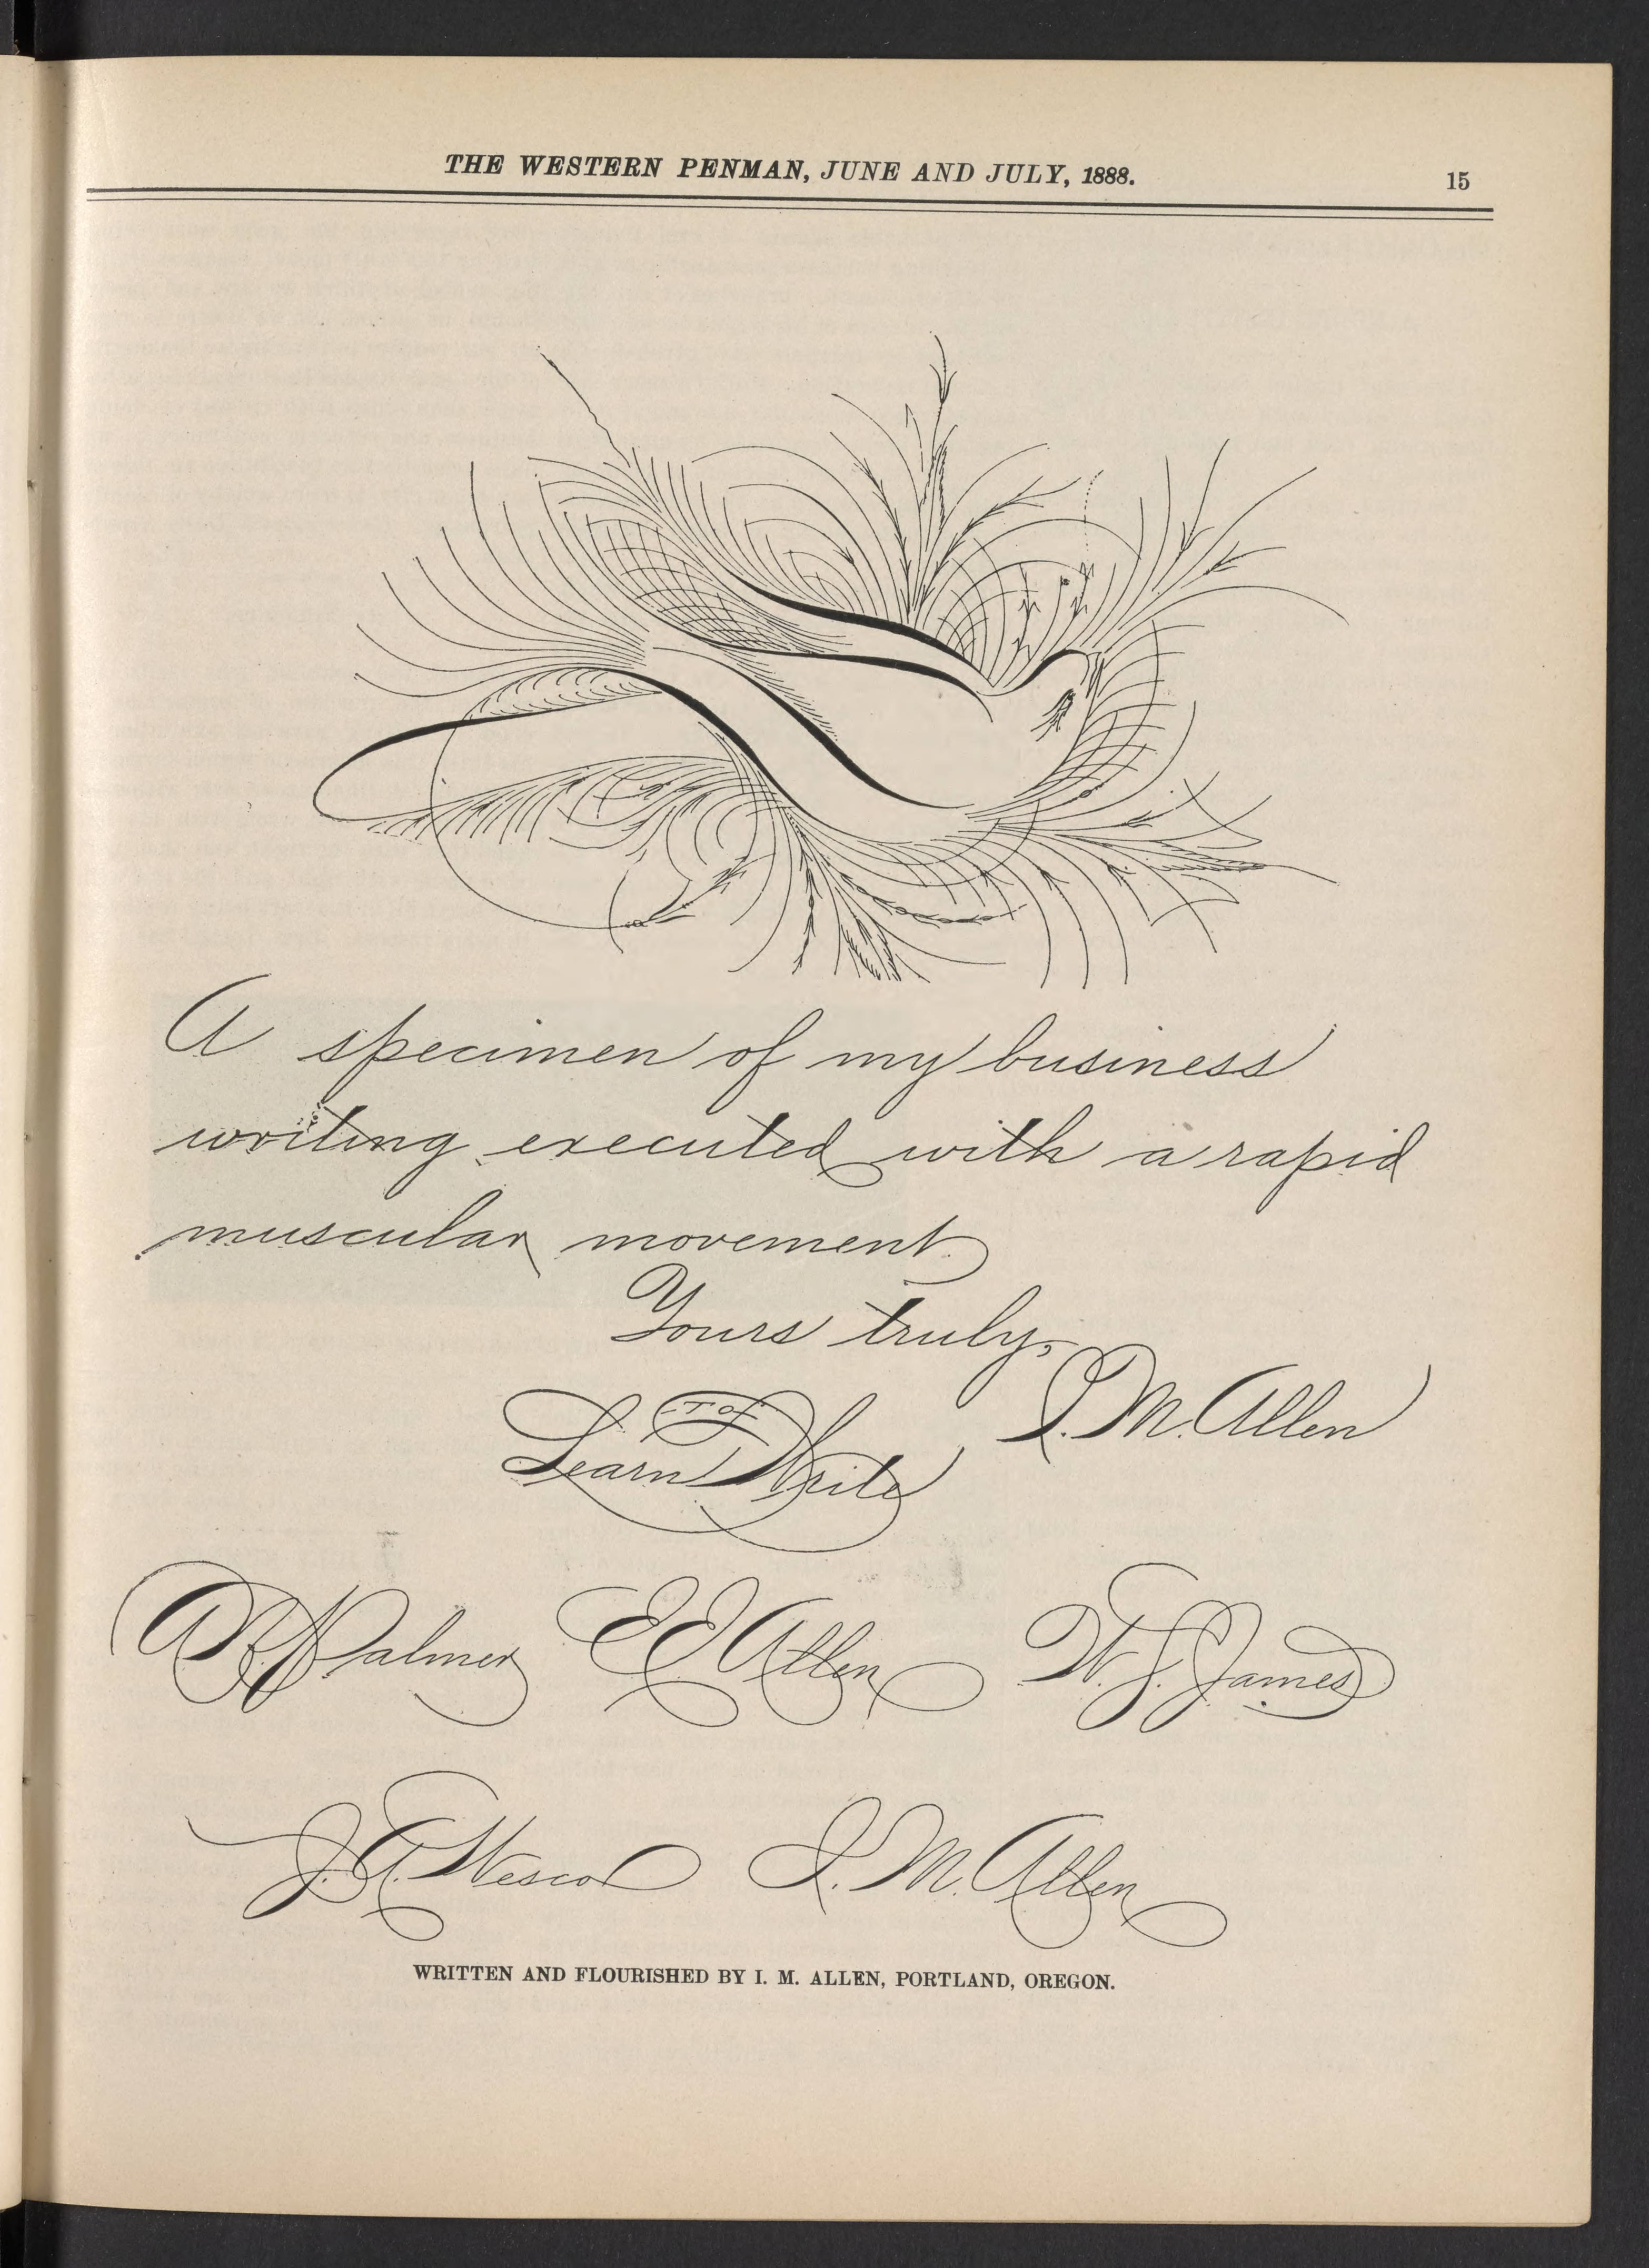 THE WESTERN PENMAN, JUNE AND JULY, 1888.
15
A specimen of my business
writing executed with a rapid
muscular movement.
Yours truly,
I. M. Allen
Learn -TO- Write
Palmer E E Allen W. J. James
J. A. Wesco I. M. Allen
WRITTEN AND FLOURISHED BY I. M. ALLEN, PORTLAND, OREGON.